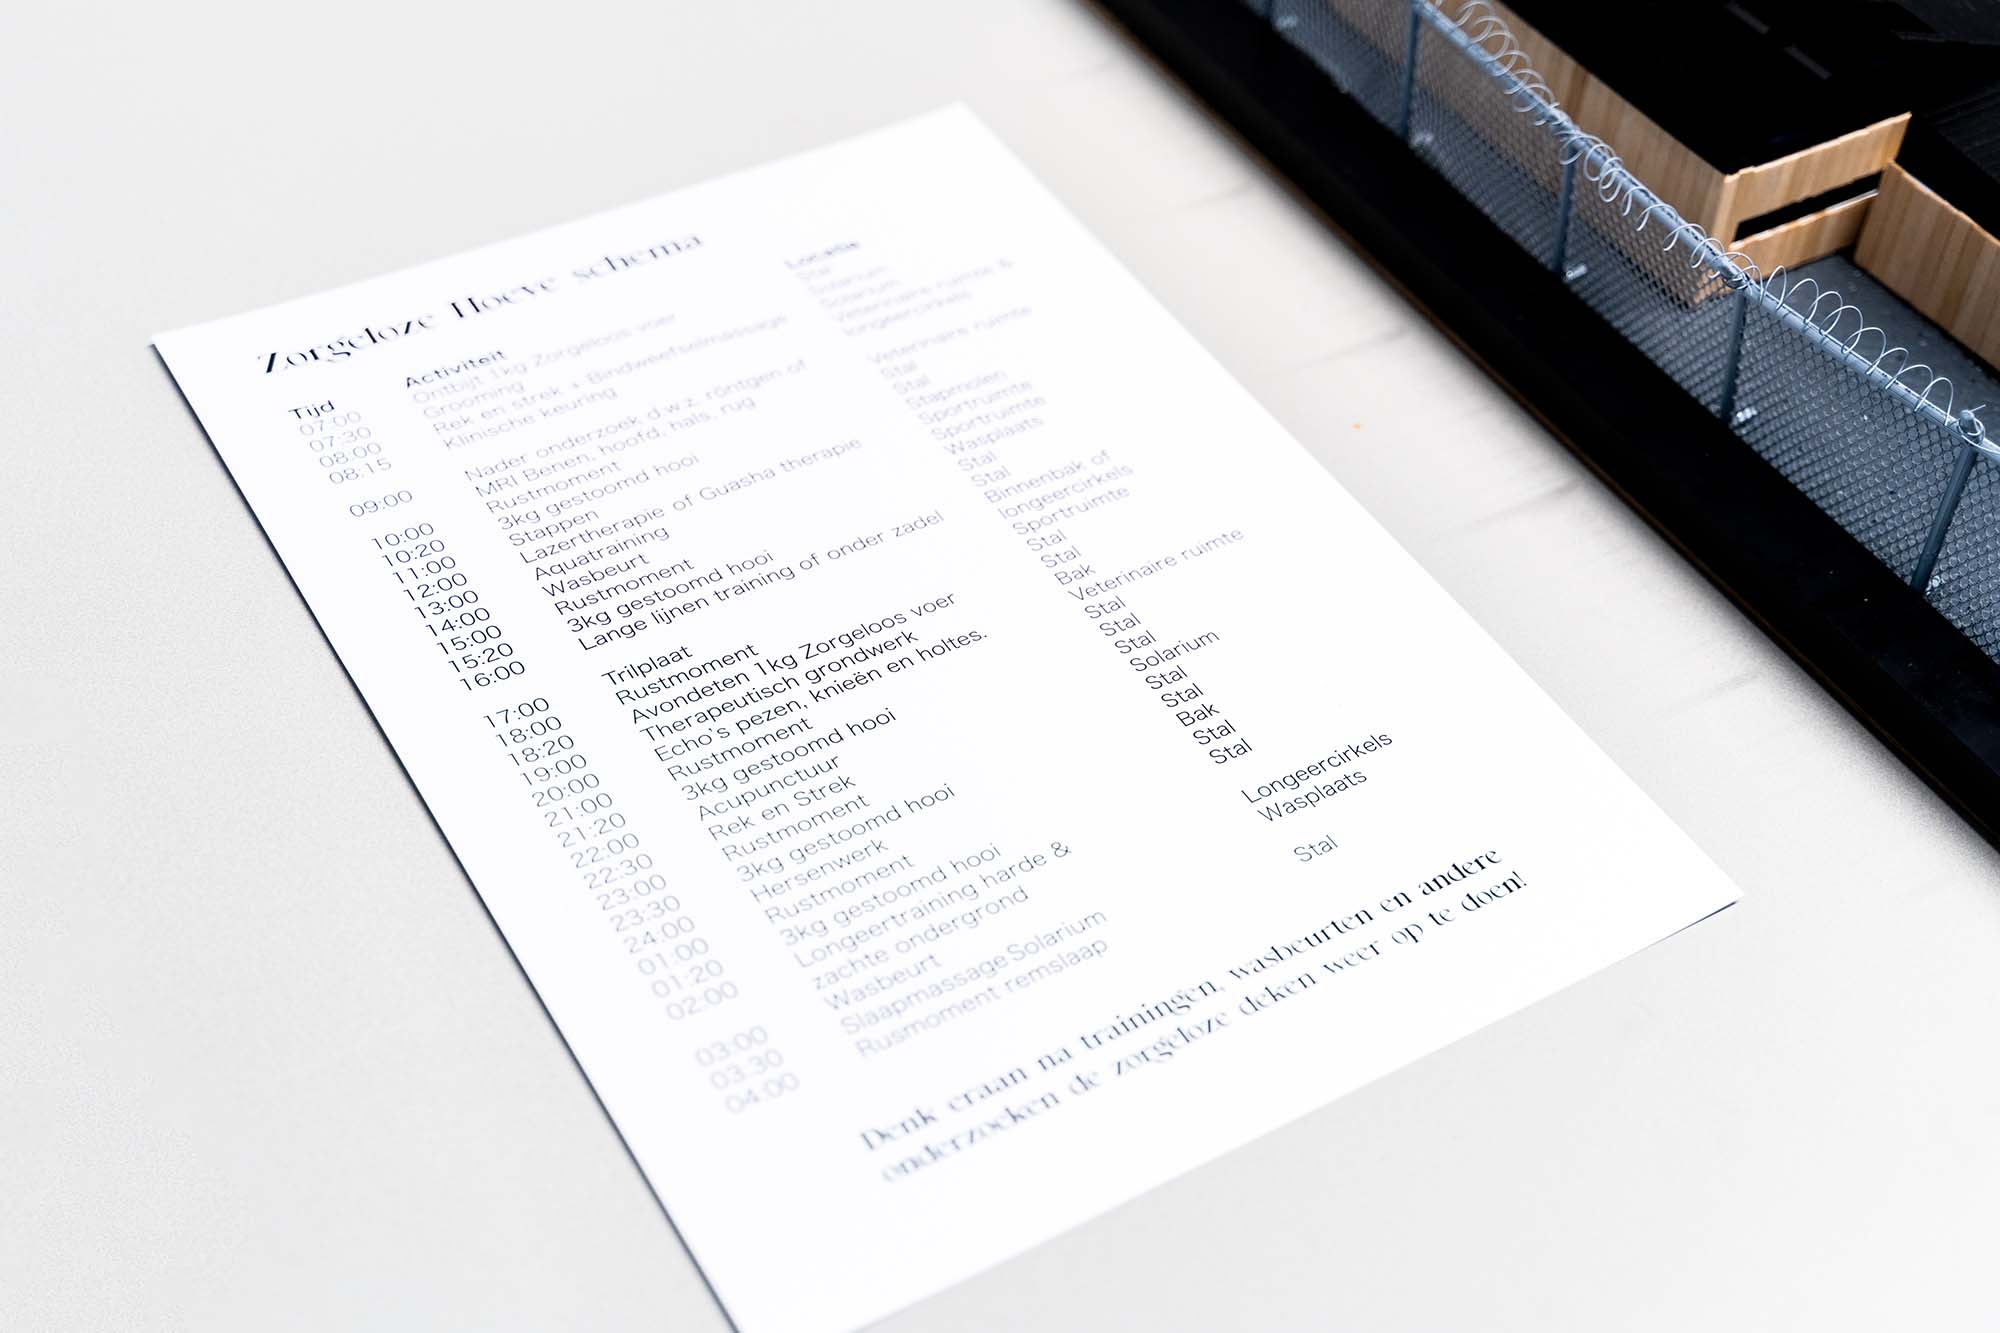 Zorgeloze Hoeve schema
Tijd Activiteit Locatie
07:00 Ontbijt 1kg Zorgeloos voer Stal
07:30 Grooming Solarium
08:00 Rek en strek + Bindweefselmassage Solarium
08:15 Klinische keuring Veterinaire ruimte &
longeercirkels
09:00 Nader onderzoek d.w.z. röntgen of Veterinaire ruimte
MRI Benen, hoofd, hals, rug
10:00 Rustmoment Stal
10:20 3kg gestoomd hooi Stal
11:00 Stappen Stapmolen
12:00 Lazertherapie of Guasha therapie Sportruimte
13:00 Aquatraining Sportruimte
14:00 Wasbeurt Wasplaats
15:00 Rustmoment Stal
15:20 3kg gestoomd hooi Stal
16:00 Lange lijnen training of onder zadel Binnenbak of
longeercirkels
17:00 Trilplaat Sportruimte
18:00 Rustmoment Stal
18:20 Avondeten 1kg Zorgeloos voer Stal
19:00 Therapeutisch grondwerk Bak
20:00 Echo's pezen, knieën en holtes. Veterinaire ruimte
21:00 Rustmoment Stal
21:20 3kg gestoomd hooi Stal
22:00 Acupunctuur Stal
22:30 Rek en Strek Solarium
23:00 Rustmoment Stal
23:30 3kg gestoomd hooi Stal
24:00 Hersenwerk Bak
01:00 Rustmoment Stal
01:20 3kg gestoomd hooi Stal
02:00 Longeertraining harde &
zachte ondergrond Longeercirkels
03:00 Wasbeurt Wasplaats
03:30 SlaapmassageSolarium
04:00 Rusmoment remslaap Stal
Denk eraan na trainingen, wasbeurten en andere
onderzoeken de zorgeloze deken weer op te doen!